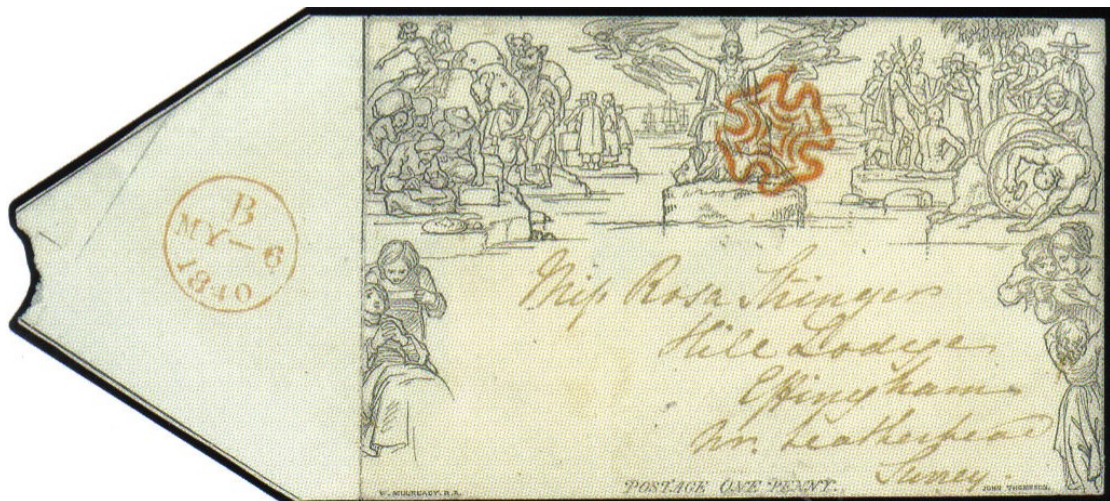 B
MY—6
1840
Miss Rosa Stringer
Hill Lodge
Effingham
Nr. Leatherhead
Surrey.
W. MULREADY. R.A.
POSTAGE ONE PENNY.
JOHN THOMPSON.